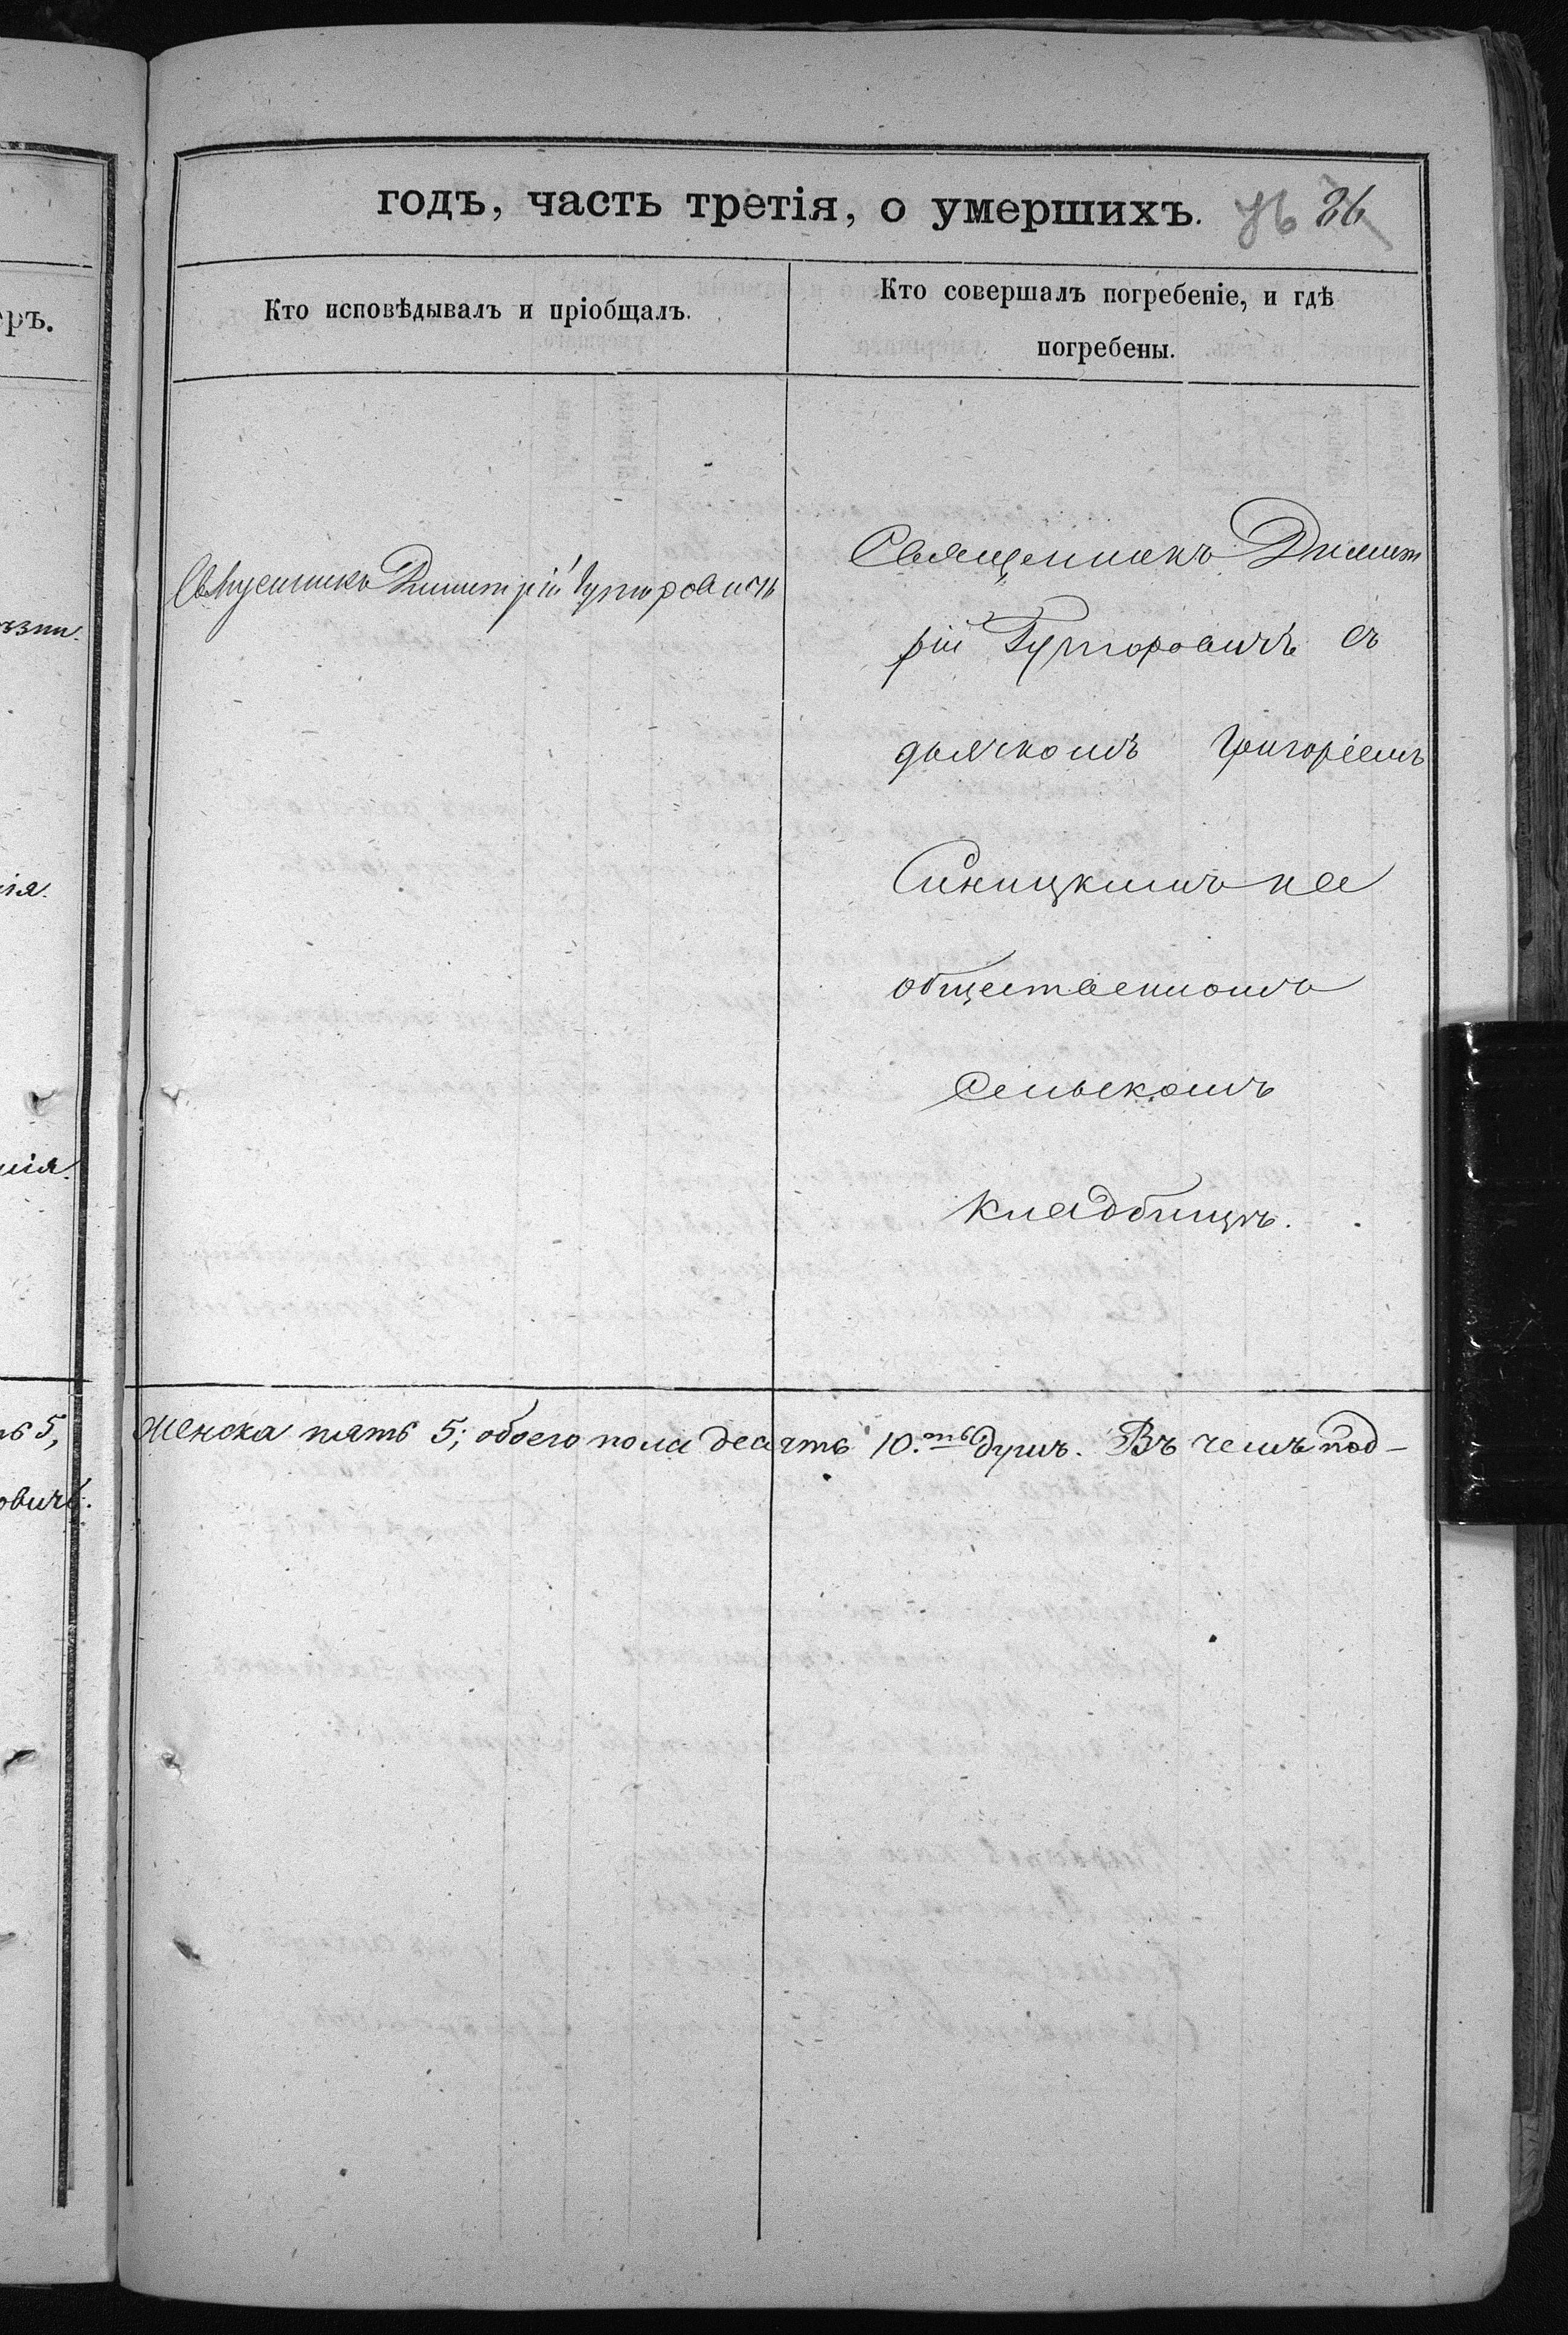 годъ, часть третія, о умершихъ.
86 86
Кто исповѣдывалъ и пріобщалъ.
Кто совершалъ погребеніе, и гдѣ
погребены.
Священникъ Димитрій Гуторовичъ
Священникъ Димит
рій Гуторовичъ съ
дьячкомъ Григоріемъ
Синицкимъ на
общественномъ
сельскомъ
кладбищѣ.
женска пять 5; обоего пола десять 10.ть душъ. Въ чемъ под-